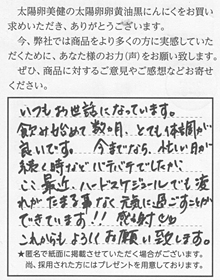 太陽卵美健の太陽卵卵黄油黒にんにくをお買い
求めいただき、ありがとうございます。
今、弊社では商品をより多くの方に実感していた
だくために、あなた様のお力(声)をお願い致します。
ぜひ、商品に対するご意見やご感想などお寄せ
ください。
いつもお世話になっています。
飲み始めて数ヶ月、とても体調が
良いです。今までなら、忙しい日が
続く時などバテバテでしたが、
ここ最近、ハードスケジュールでも疲
れがたまる事なく元気に過ごすことが
できています!!感謝です
これからもよろしくお願い致します。
★匿名で紙面に掲載させていただく場合がございます。
尚、採用された方にはプレゼントを用意しております。